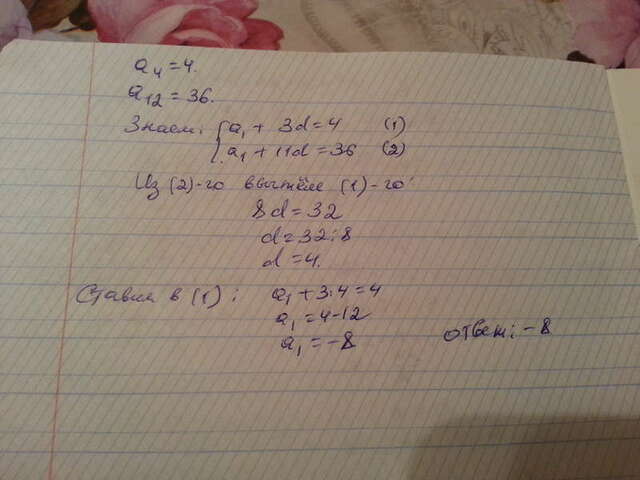 a₄ = 4.
a₁₂ = 36.
Знаем: { a₁ + 3d = 4 (1)
a₁ + 11d = 36 (2)
Из (2)-го вычтём (1)-го:
8d = 32
d = 32:8
d = 4.
Ставим в (1): a₁ + 3·4 = 4
a₁ = 4-12
a₁ = -8
ответ: -8